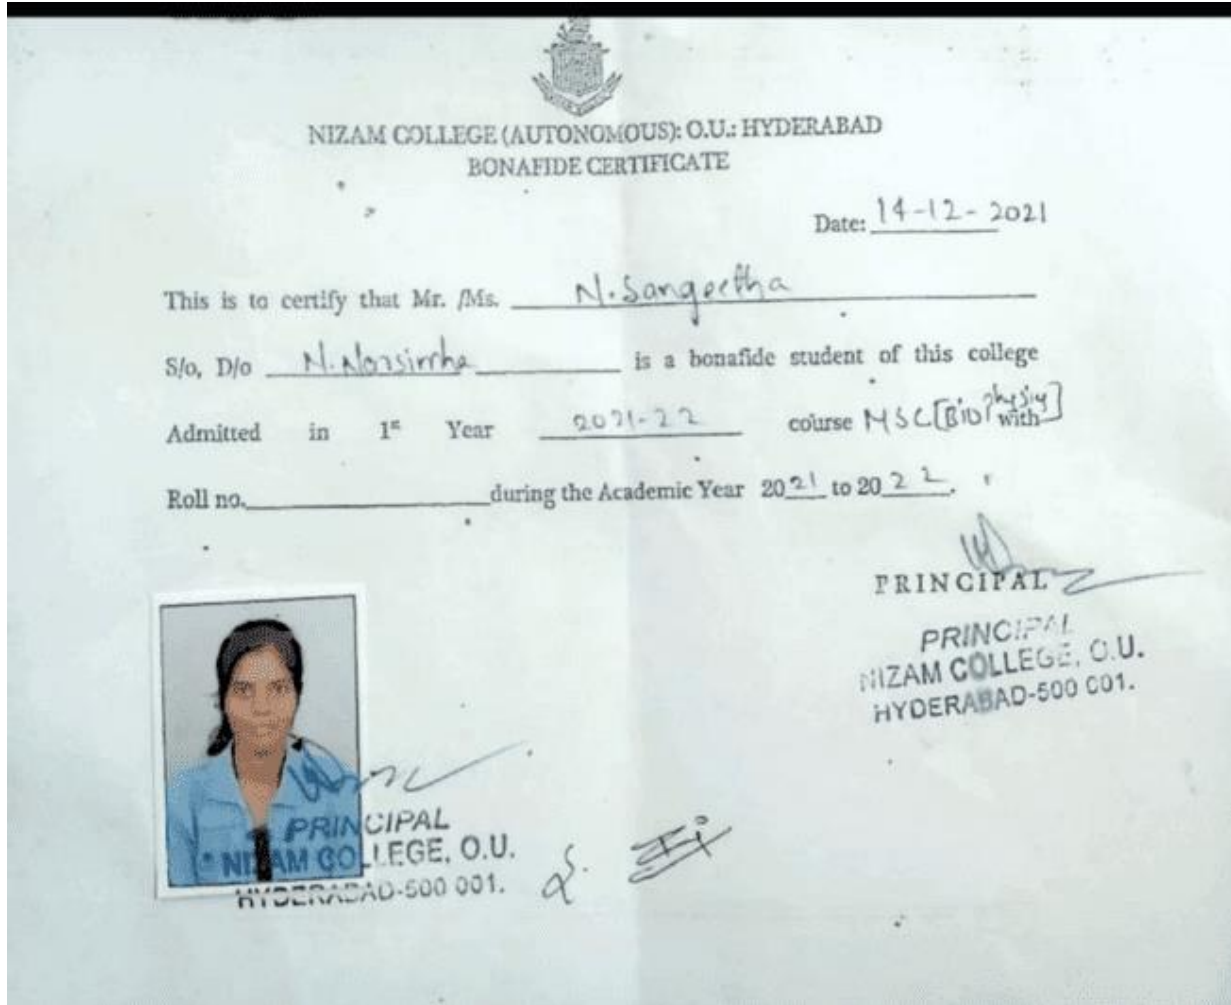 NIZAM COLLEGE (AUTONOMOUS): O.U.: HYDERABAD
BONAFIDE CERTIFICATE
Date: 14-12-2021
This is to certify that Mr. /Ms. N. Sangeetha
S/o, D/o N. Narsimha is a bonafide student of this college
Admitted in 1st Year 2021-22 course MSC [Bio Physics] with
Roll no. during the Academic Year 2021 to 2022.
PRINCIPAL
PRINCIPAL
NIZAM COLLEGE, O.U.
HYDERABAD-500 001.
PRINCIPAL
NIZAM COLLEGE, O.U.
HYDERABAD-500 001.